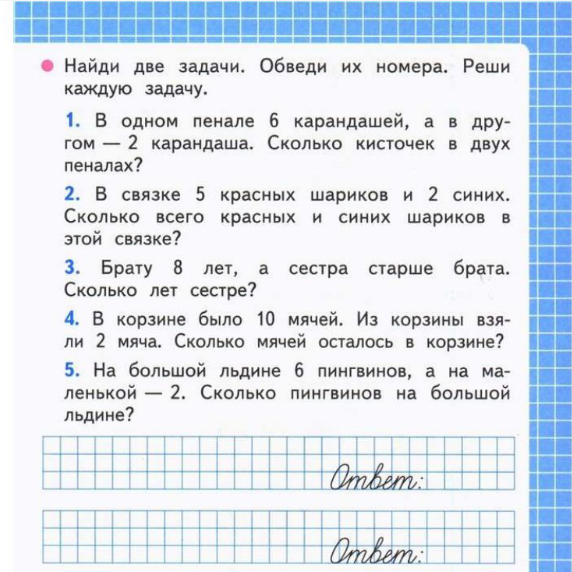 Найди две задачи. Обведи их номера. Реши
каждую задачу.
1. В одном пенале 6 карандашей, а в дру-
гом — 2 карандаша. Сколько кисточек в двух
пеналах?
2. В связке 5 красных шариков и 2 синих.
Сколько всего красных и синих шариков в
этой связке?
3. Брату 8 лет, а сестра старше брата.
Сколько лет сестре?
4. В корзине было 10 мячей. Из корзины взя-
ли 2 мяча. Сколько мячей осталось в корзине?
5. На большой льдине 6 пингвинов, а на ма-
ленькой — 2. Сколько пингвинов на большой
льдине?
Ответ:
Ответ: